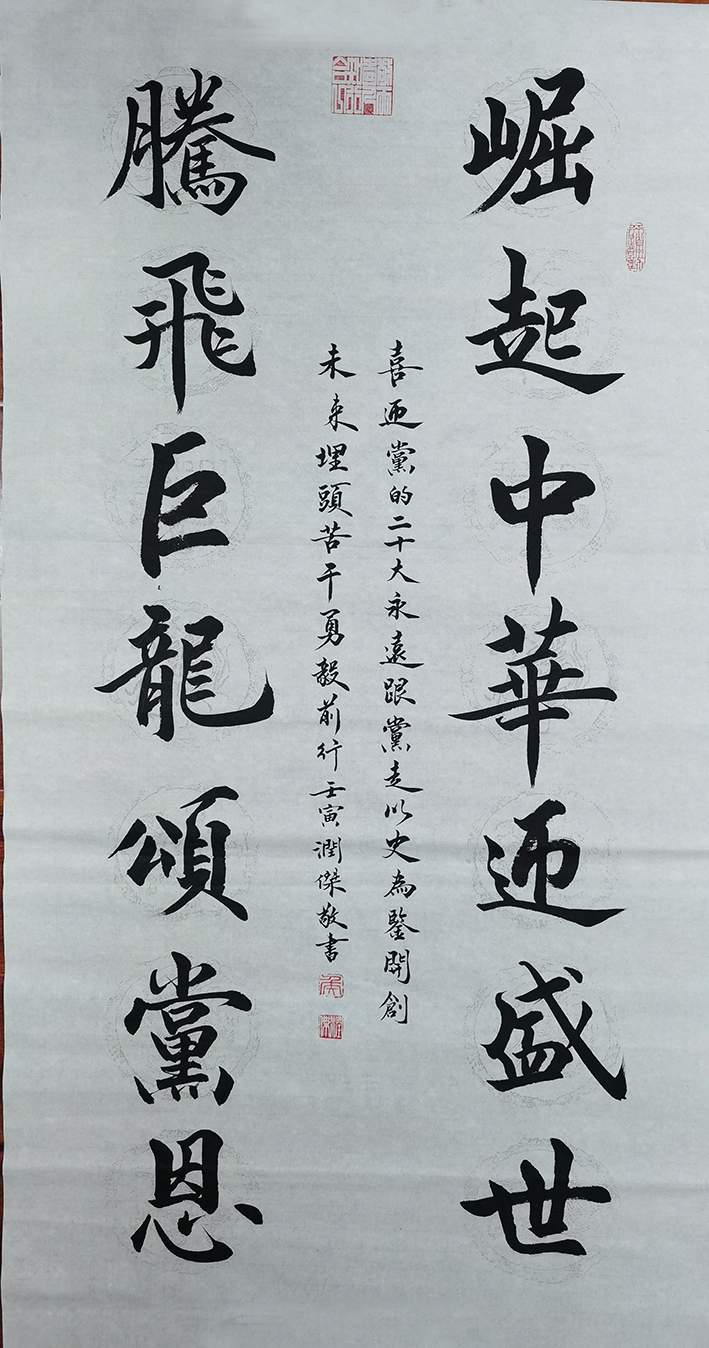 崛起中華迎盛世
喜迎黨的二十大永遠跟黨走以史為鑒開創
未来埋頭苦干勇毅前行壬寅潤傑敬書
騰飛巨龍頌黨恩